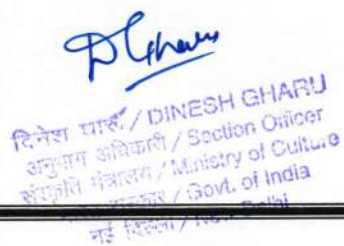 DGharu
दिनेश घारू / DINESH GHARU
अनुभाग अधिकारी / Section Officer
संस्कृति मंत्रालय / Ministry of Culture
/ Govt. of India
नई दिल्ली / New Delhi